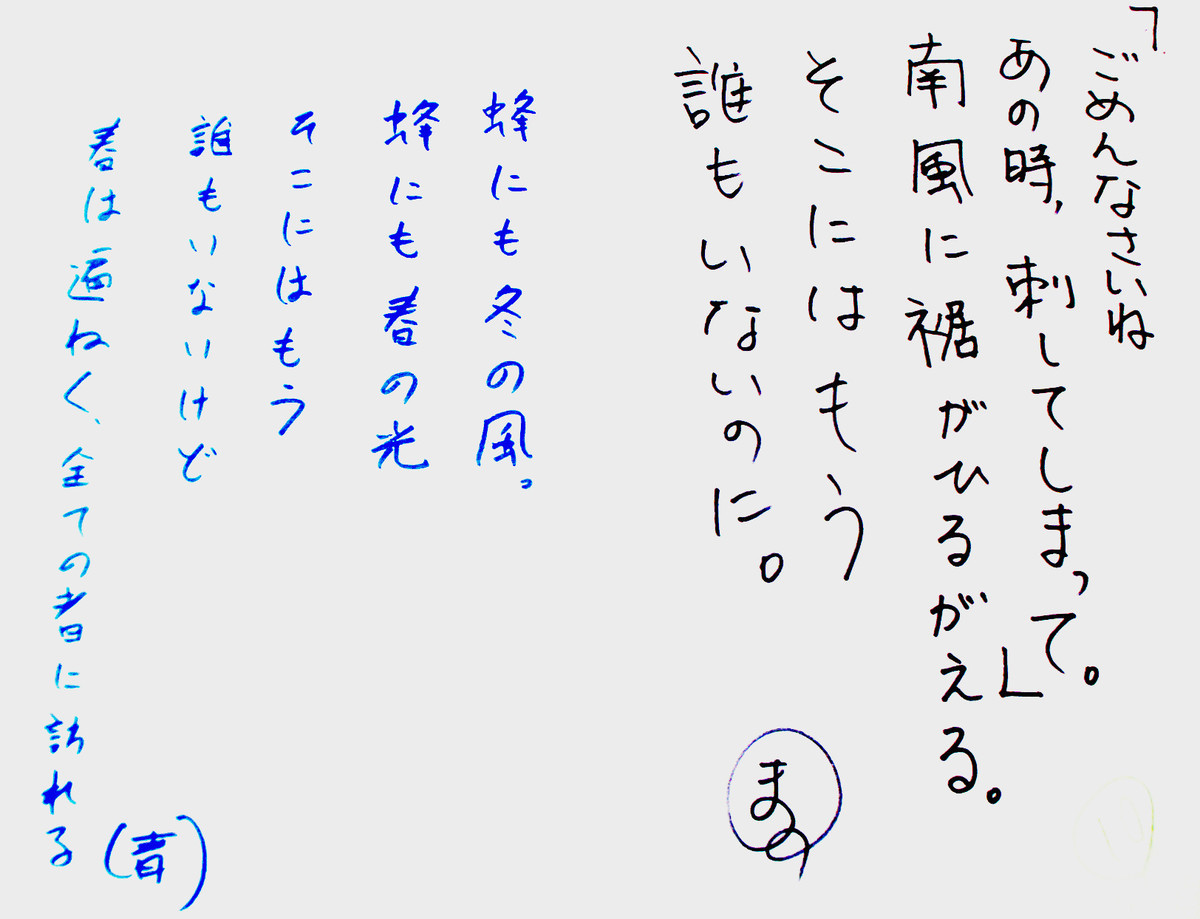 「ごめんなさいね
あの時、刺してしまって。」
南風に裾がひるがえる。
そこにはもう
誰もいないのに。
まの
蜂にも冬の風。
蜂にも春の光
そこにはもう
誰もいないけど
春は遍ねく、全ての者に訪れる
(青)